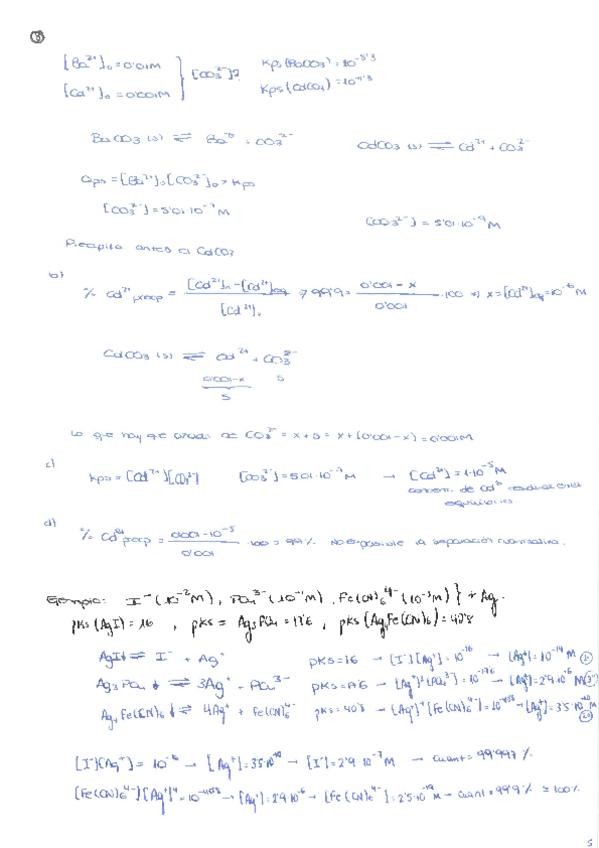 ⑧
[Ba²⁺]₀ = 0'01M } [CO₃²⁻]? Kps (BaCO₃) = 10⁻⁸'³
[Cd²⁺]₀ = 0'001M Kps (CdCO₃) =
BaCO₃ (s) ⇌ Ba²⁺ + CO₃²⁻ CdCO₃ (s) ⇌ Cd²⁺ + CO₃²⁻
Qps = [Ba²⁺]₀[CO₃²⁻]₀ > Kps
[CO₃²⁻] = 5'01·10⁻⁷ M [CO₃²⁻] = 5'01·10⁻⁹ M
Precipita antes el CdCO₃
b)
% Cd²⁺ precip = [Cd²⁺]₀ - [Cd²⁺]eq / [Cd²⁺]₀ → 99'9 = 0'001 - x / 0'001 · 100 → x = [Cd²⁺]eq = 10⁻⁶ M
CdCO₃ (s) ⇌ Cd²⁺ + CO₃²⁻
0'001-x S
S
Lo que hay que añadir de CO₃²⁻ = x + s = x + (0'001 - x) = 0'001M
c)
Kps = [Cd²⁺][CO₃²⁻] [CO₃²⁻] = 5'01·10⁻⁷ M → [Cd²⁺] = 1·10⁻⁵ M
concen. de Cd²⁺ en el
equilibrio
d)
% Cd²⁺ precip = 0'001 - 10⁻⁵ / 0'001 · 100 = 99% No es posible la separación cuantitativa.
Ejemplo: I⁻ (10⁻² M), PO₄³⁻ (10⁻¹ M), Fe(CN)₆⁴⁻ (10⁻³ M) } + Ag
pKs (AgI) = 16, pKs = Ag₃PO₄ = 17'6, pKs (Ag₄Fe(CN)₆) = 40'8
AgI↓ ⇌ I⁻ + Ag⁺ pKS = 16 → [I⁻][Ag⁺] = 10⁻¹⁶ → [Ag⁺] = 10⁻¹⁴ M (1º)
Ag₃PO₄ ↓ ⇌ 3Ag⁺ + PO₄³⁻ pKS = 17'6 → [Ag⁺]³[PO₄³⁻] = 10⁻¹⁷'⁶ → [Ag⁺] = 2'9·10⁻⁶ M (3º)
Ag₄Fe(CN)₆ ↓ ⇌ 4Ag⁺ + Fe(CN)₆⁴⁻ pKS = 40'8 → [Ag⁺]⁴[Fe(CN)₆⁴⁻] = 10⁻⁴⁰'⁸ → [Ag⁺] = 3'5·10⁻¹⁰ M (2º)
[I⁻][Ag⁺] = 10⁻¹⁶ → [Ag⁺] = 3'5·10⁻¹⁰ → [I⁻] = 2'9·10⁻⁷ M → cuant = 99'997 %
[Fe(CN)₆⁴⁻][Ag⁺]⁴ = 10⁻⁴⁰'⁸ → [Ag⁺] = 2'9·10⁻⁶ → [Fe(CN)₆⁴⁻] = 2'5·10⁻¹⁹ M → cuant = 99'9 % ≃ 100%
5